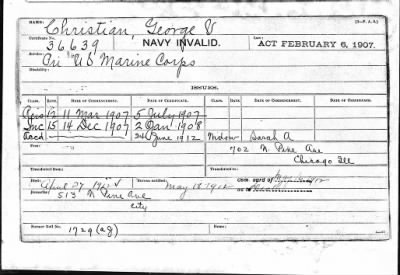 NAME: Christian, George V (3—P.A.S.)
Certificate No. 36639 NAVY INVALID. ACT FEBRUARY 6, 1907.
Service: Pri US Marine Corps
Disability:
ISSUES.
CLASS. RATE. DATE OF COMMENCEMENT. DATE OF CERTIFICATE. CLASS. RATE. DATE OF COMMENCEMENT. DATE OF CERTIFICATE.
12 11 Mar 1907 5 July 1907
Inc 15 14 Dec 1907 2 Jan 1908
June 1912 Widow Sarah A
From: 702 N Pine Ave
Chicago Ill
Transferred from
April 27 May 18 1912
Remarks: 513 N Pine Ave
City
Bureau Call No. 1729 Home: